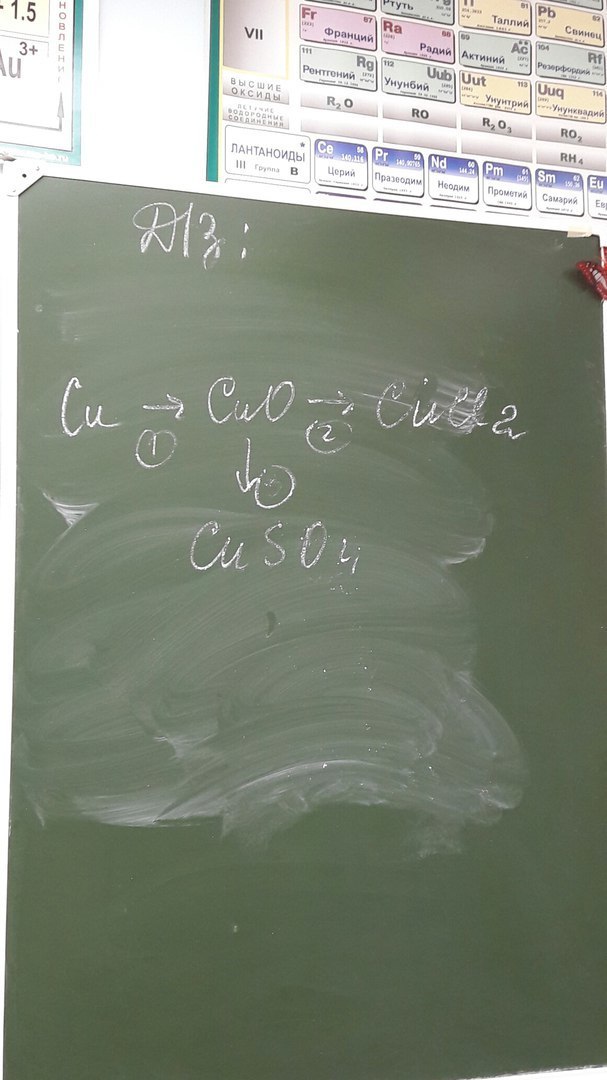 - 1.5
3+
Au
НОВЛЕНИ
VII
Ртуть
Таллий
81
Pb
82
Свинец
Fr
87
Франций
Ra
88
Радий
89
Ac
Актиний
104
Rf
Резерфордий
111
Rg
Рентгений
112
Uub
Унунбий
Uut
113
Унунтрий
Uuq
114
Унунквадий
ВЫСШИЕ
ОКСИДЫ
R₂O
RO
R₂O₃
RO₂
ЛЕТУЧИЕ
ВОДОРОДНЫЕ
СОЕДИНЕНИЯ
RH₄
ЛАНТАНОИДЫ *
III Группа B
Ce
58
140,116
Церий
Pr
59
140,90765
Празеодим
Nd
60
144,24
Неодим
Pm
61
Прометий
Sm
62
150,36
Самарий
Eu
Евр
Д/з:
Cu → CuO → CuCl₂
① ②
↓
CuSO₄